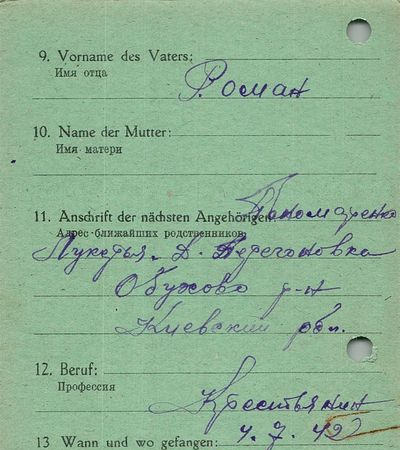 9. Vorname des Vaters:
Имя отца
Роман
10. Name der Mutter:
Имя матери
11. Anschrift der nächsten Angehörigen Пономаренко
Адрес ближайших родственников
Лукерья. д. Перегоновка
Обухово р-н
Киевский обл.
12. Beruf:
Профессия
Крестьянин
13 Wann und wo gefangen: 4. 7. 42